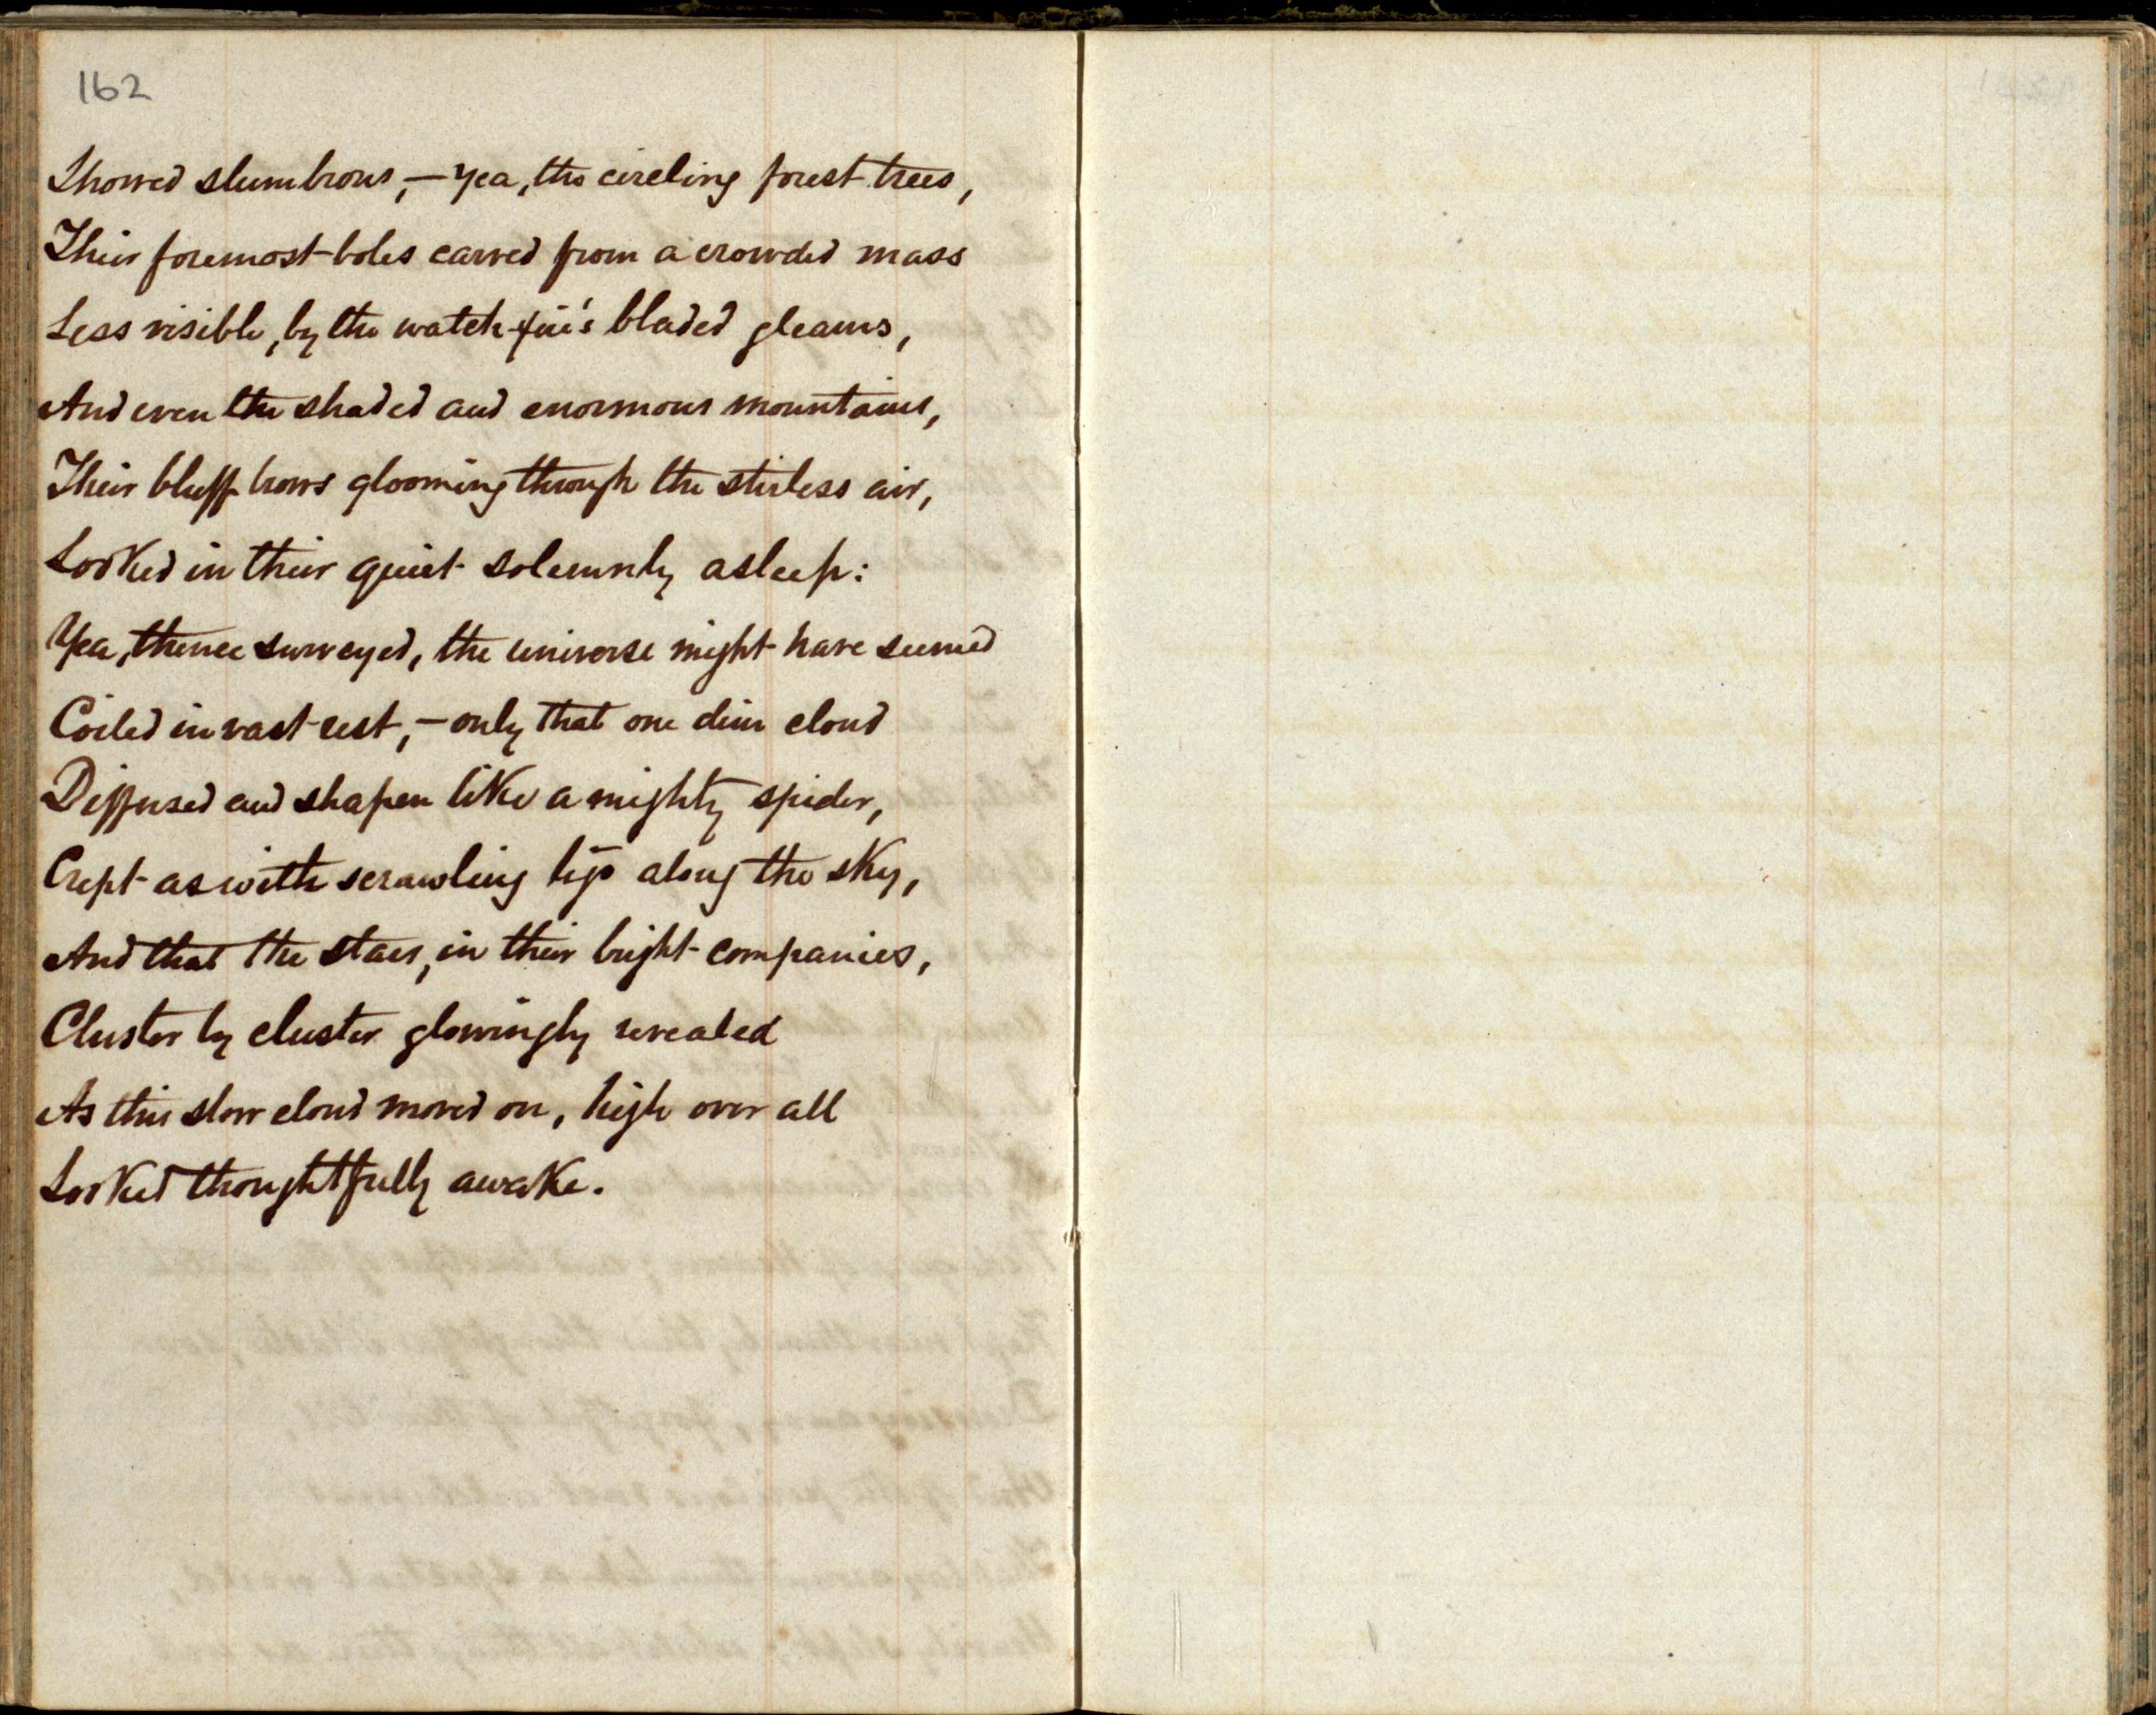 162
Showed slumbrous,—yea, the circling forest trees,
Their foremost boles carved from a crowded mass
Less visible, by the watch-fire's bladed gleams,
And even the shaded and enormous mountains,
Their bluff brows glooming through the stirless air,
Looked in their quiet solemnly asleep:
Yea, thence surveyed, the universe might have seemed
Coiled in vast rest,—only that one dim cloud
Diffused and shapen like a mighty spider,
Crept as with scrawling legs along the sky,
And that the stars, in their bright companies,
Cluster by cluster glowingly revealed
As this slow cloud moved on, high over all
Looked thoughtfully awake.